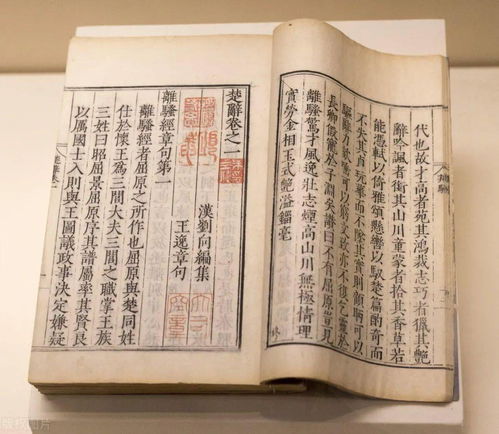 代也故才高者苑其鴻裁志巧者獵其艷
辭吟諷者銜其山川童蒙者拾其香草若
能憑軾以倚雅頌懸轡以馭楚篇酌奇而
不失其貞玩華而不墜其實則顧盼可以
驅辭力欬唾可以窮文致亦不復乞靈於
長卿假寵於子淵矣讚曰不有屈原豈見
離騷驚才風逸壯志煙高山川無極情理
實勞金相玉式艷溢錙毫
楚辭卷之一
漢劉向編集
王逸章句
離騷經章句第一
離騷經者屈原之所作也屈原與楚同姓
仕於懷王爲三閭大夫三閭之職掌王族
三姓曰昭屈景屈原序其譜屬率其賢良
以厲國士入則與王圖議政事決定嫌疑
版权图片